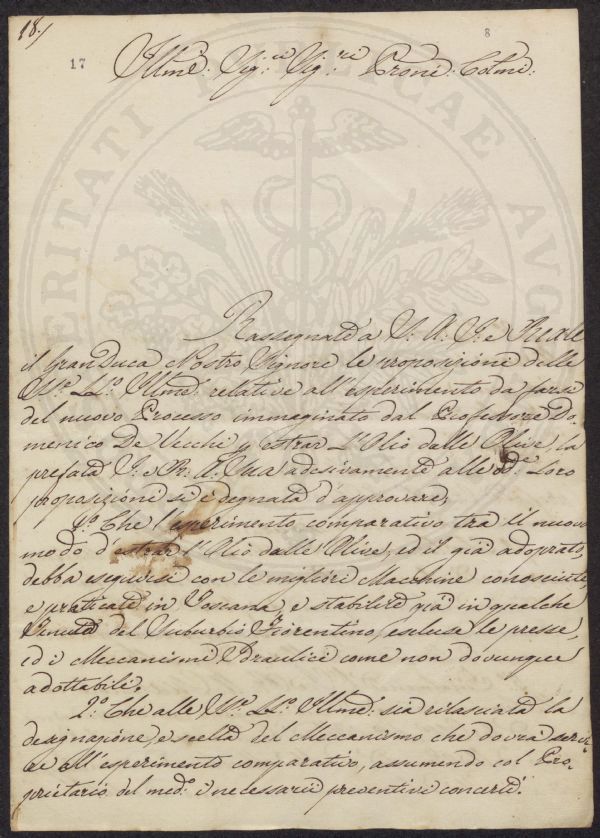 18./
17
8
Illmi: Sig:ri Sig:ri Proni: Colmi:
Rassegnate a S. A. I. e Reale
il Gran Duca Nostro Signore le proposizione delle
SS.e LL.o Illme: relative all'esperimento da farsi
del nuovo Processo immaginato dal Professore Do-
menico De Vecchi p estrar L'Olio dalle Olive, la
prefata I. e R. A. Sua adesivamente alle dde Loro
proposizione si è degnata d'approvare,
1.o Che l'esperimento comparativo tra il nuovo
modo d'estrar l'Olio dalle Olive, ed il già adoprato,
debba eseguirsi con le migliori Macchine conosciute,
e praticate in Toscana, e stabilite già in qualche
Tenuta del Suburbio Fiorentino, escluse le presse,
ed i Meccanismi Idraulici come non dovunque
adottabili.
2.o Che alle SS.e LL.o Illme: sia rilasciata la
designazione, e scelta del Meccanismo che dovrà servi-
re all'esperimento comparativo, assumendo col Pro-
prietario del medo: i necessarii preventivi concerti.